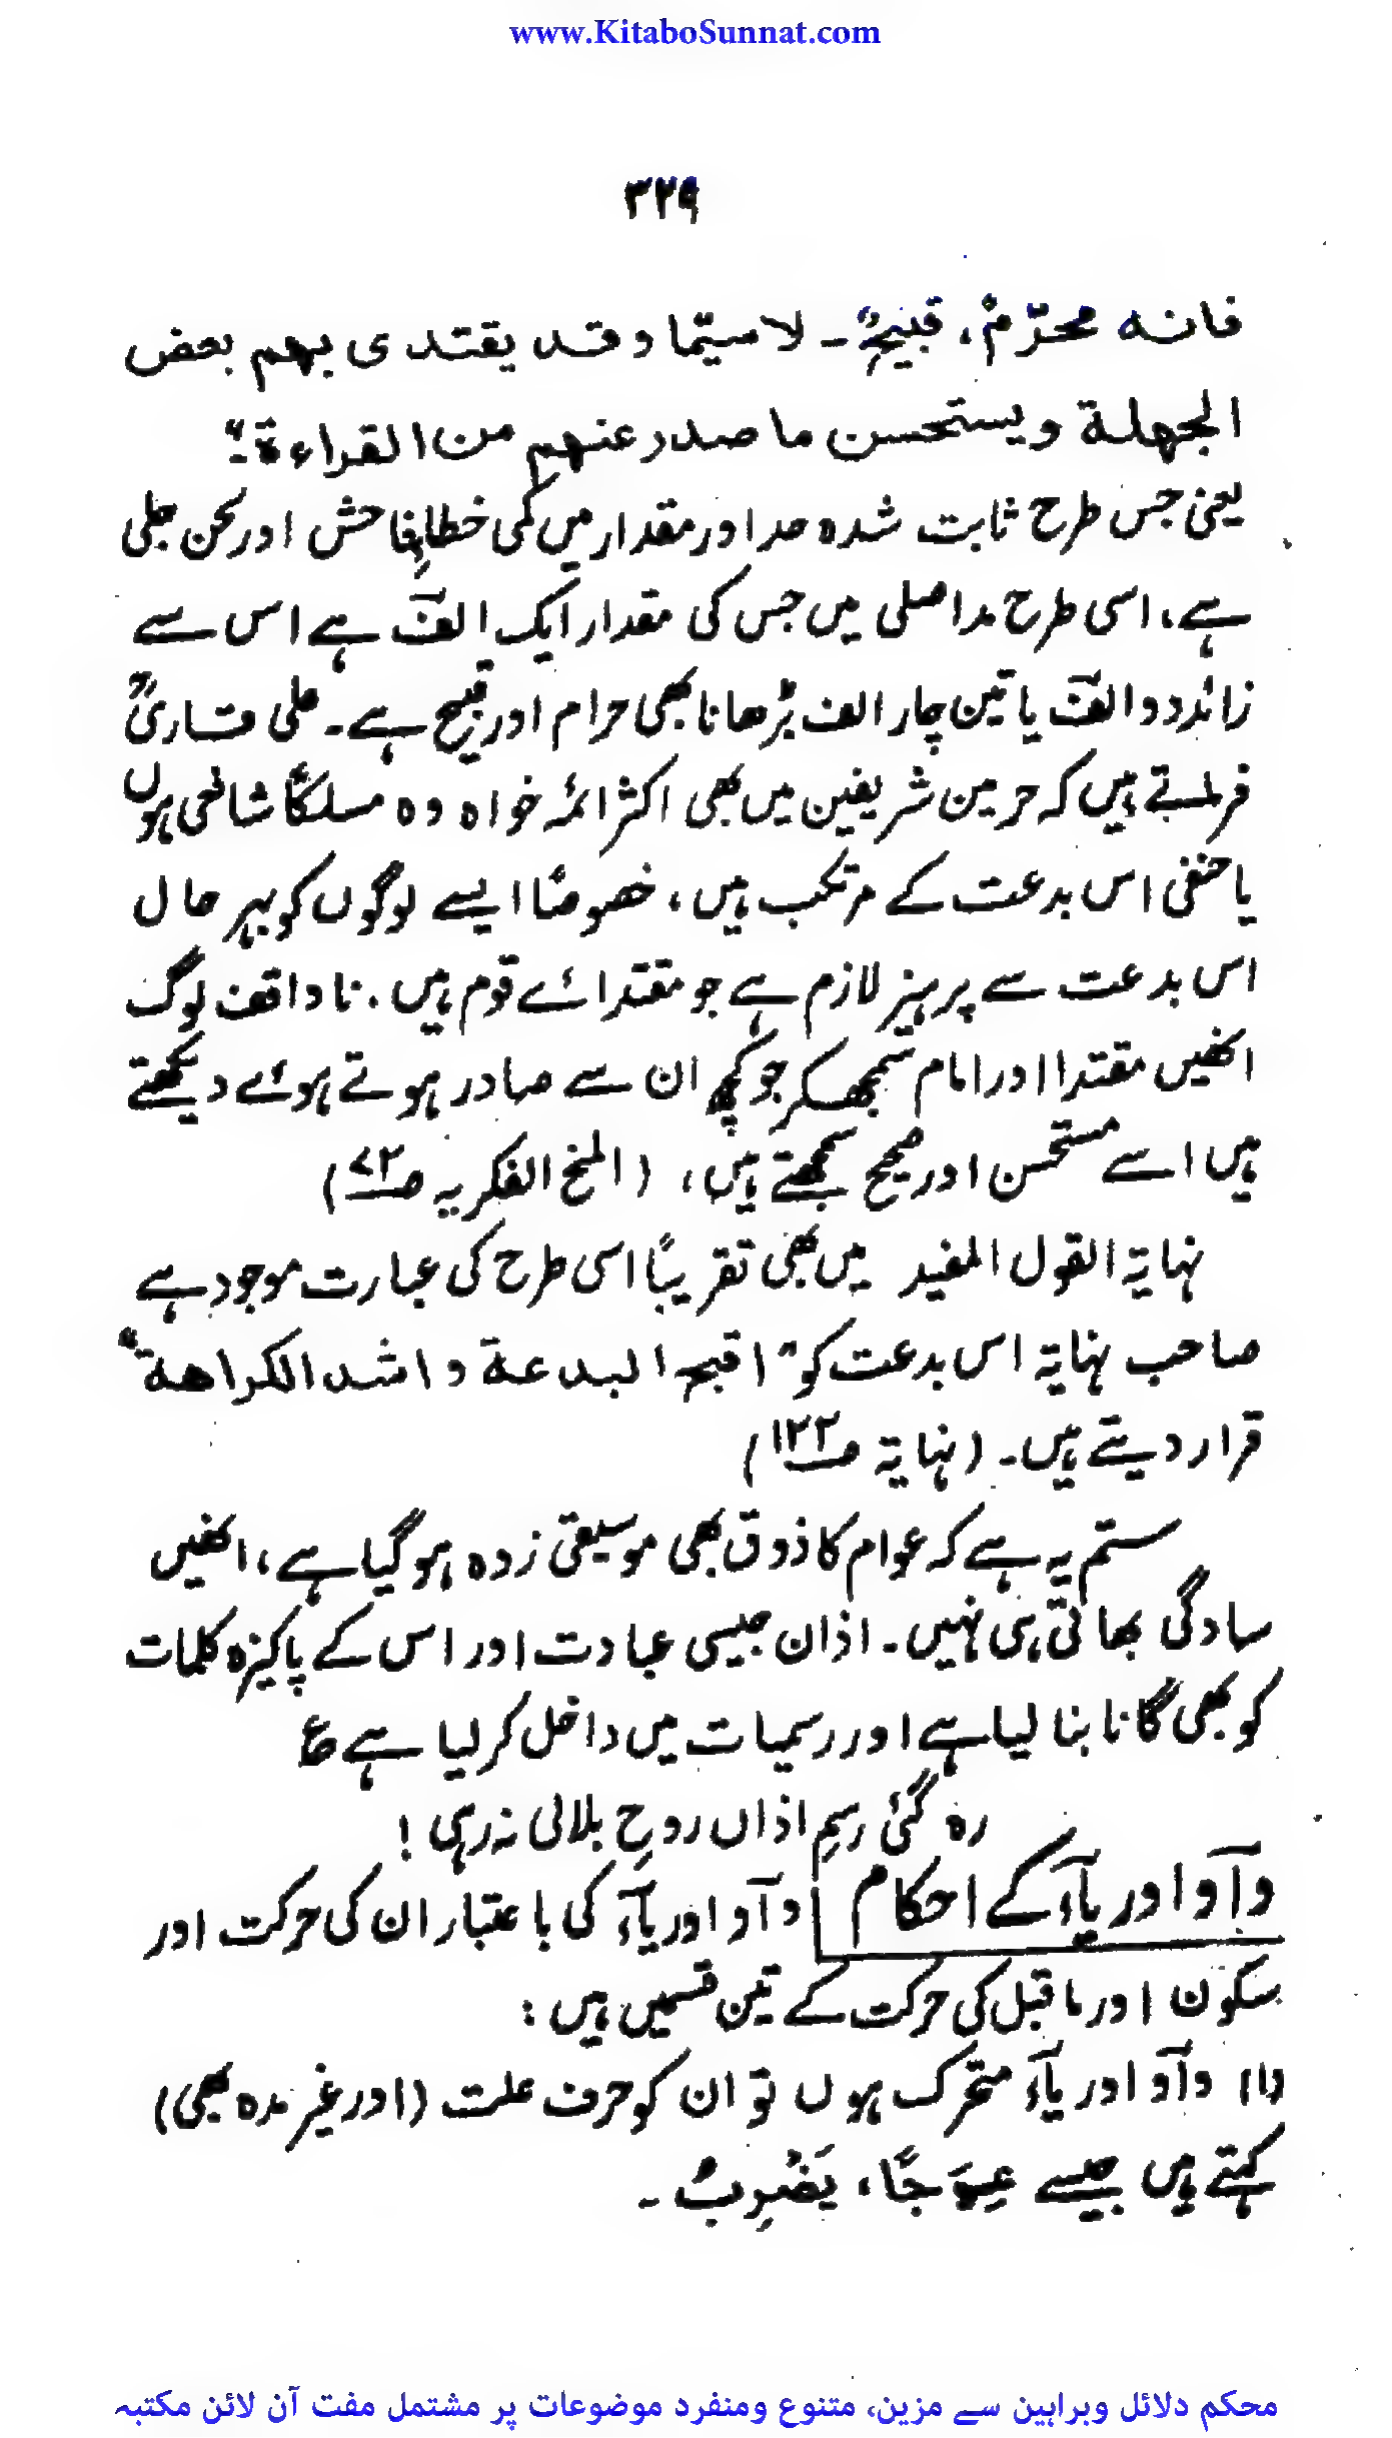 www.KitaboSunnat.com
۳۲۹
فانه محرّمٌ، قبیحٌ۔ لاسیّما وقد یقتدی بهم بعض
الجهلة ویستحسن ما صدر عنهم من القراءة۔“
یعنی جس طرح ثابت شدہ مد اور مقدار میں کمی خطاءِ فاحش اور لحن جلی
ہے، اسی طرح مد اصلی میں جس کی مقدار ایک الف ہے اس سے
زائد دو الف یا تین چار الف بڑھانا بھی حرام اور قبیح ہے۔ علی قاریؒ
فرماتے ہیں کہ حرمین شریفین میں بھی اکثر ائمہ خواہ وہ مسلکاً شافعی ہوں
یا حنفی اس بدعت کے مرتکب ہیں، خصوصاً ایسے لوگوں کو بہر حال
اس بدعت سے پرہیز لازم ہے جو مقتدائے قوم ہیں۔ ناواقف لوگ
انھیں مقتدا اور امام سمجھکر جو کچھ ان سے صادر ہوتے ہوئے دیکھتے
ہیں اسے مستحسن اور صحیح سمجھتے ہیں، (المنح الفکریہ ص۷۲)
نہایة القول المفید میں بھی تقریباً اسی طرح کی عبارت موجود ہے
صاحب نہایة اس بدعت کو ”اقبح البدعة واشد الکراهة“
قرار دیتے ہیں۔ (نہایة ص۱۲۲)
ستم یہ ہے کہ عوام کا ذوق بھی موسیقی زدہ ہوگیا ہے، انھیں
سادگی بھاتی ہی نہیں۔ اذان جیسی عبادت اور اس کے پاکیزہ کلمات
کو بھی گانا بنا لیا ہے اور رسمیات میں داخل کر لیا ہے ؏
رہ گئی رسمِ اذاں روحِ بلالی نہ رہی!
واؔو اور یاؔء کے احکام واؔو اور یاؔء کی با عتبار ان کی حرکت اور
سکون اور ماقبل کی حرکت کے تین قسمیں ہیں:
(۱) واؔو اور یاؔء متحرک ہوں تو ان کو حرف علت (اور غیر مدہ بھی)
کہتے ہیں جیسے عِوَجًا، یَضْرِبُ۔
محکم دلائل وبراہین سے مزین، متنوع ومنفرد موضوعات پر مشتمل مفت آن لائن مکتبہ